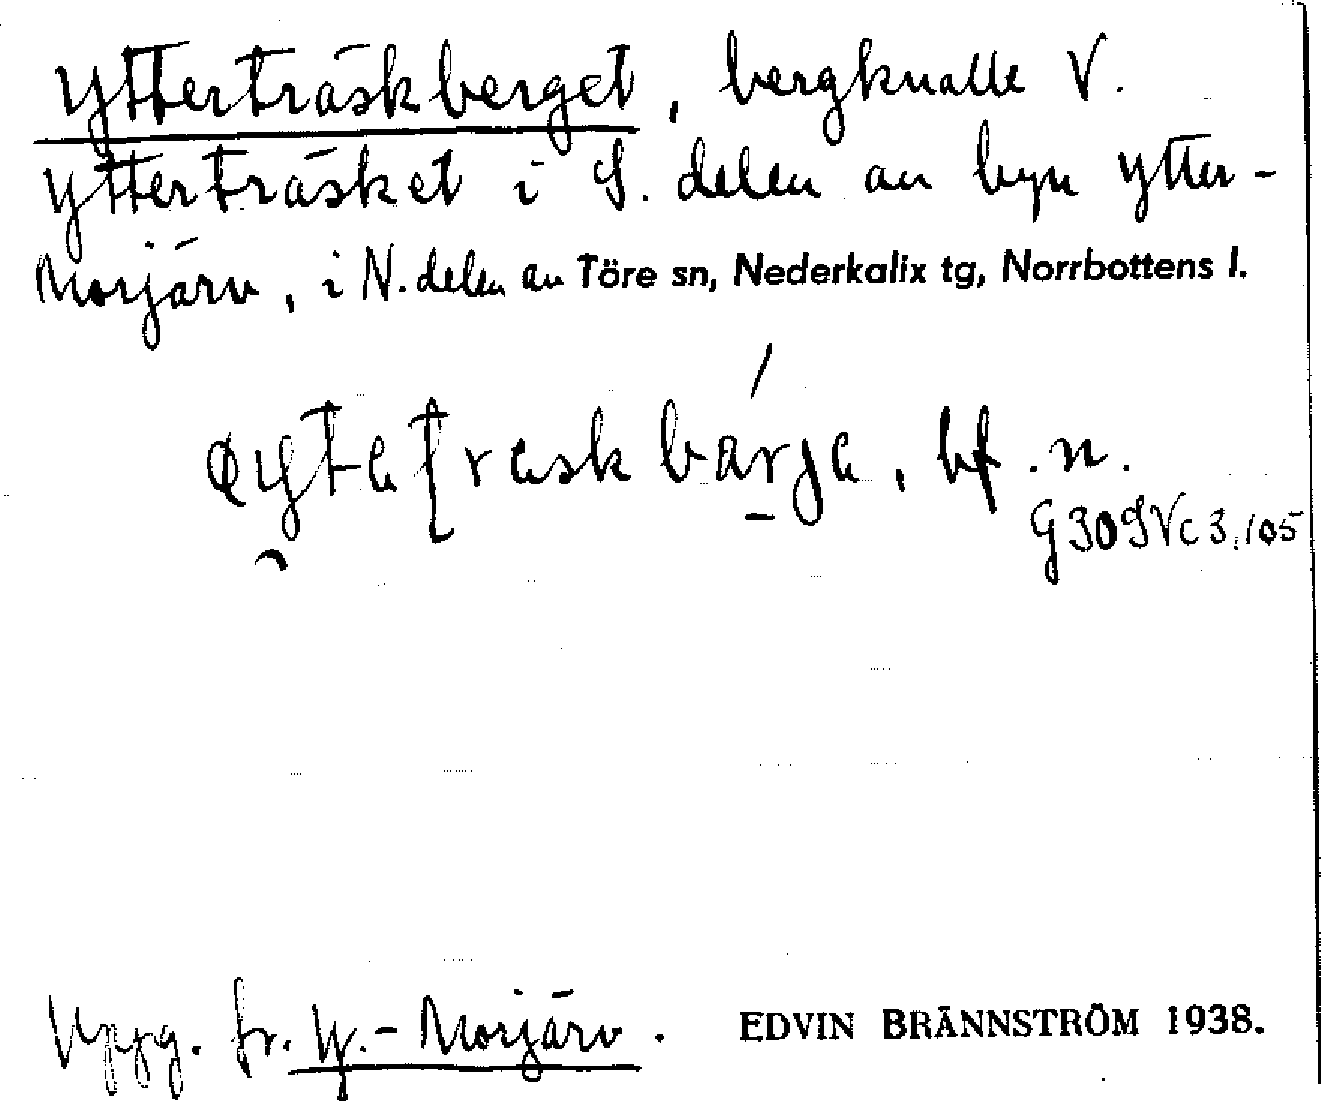 Ytterträskberget, bergknalle V.
Ytterträsket i S. delen av byn Ytter-
Morjärv, i N. delen av Töre sn, Nederkalix tg, Norrbottens l.
bf. n.
Uppg. fr. Y.-Morjärv. EDVIN BRÄNNSTRÖM 1938.